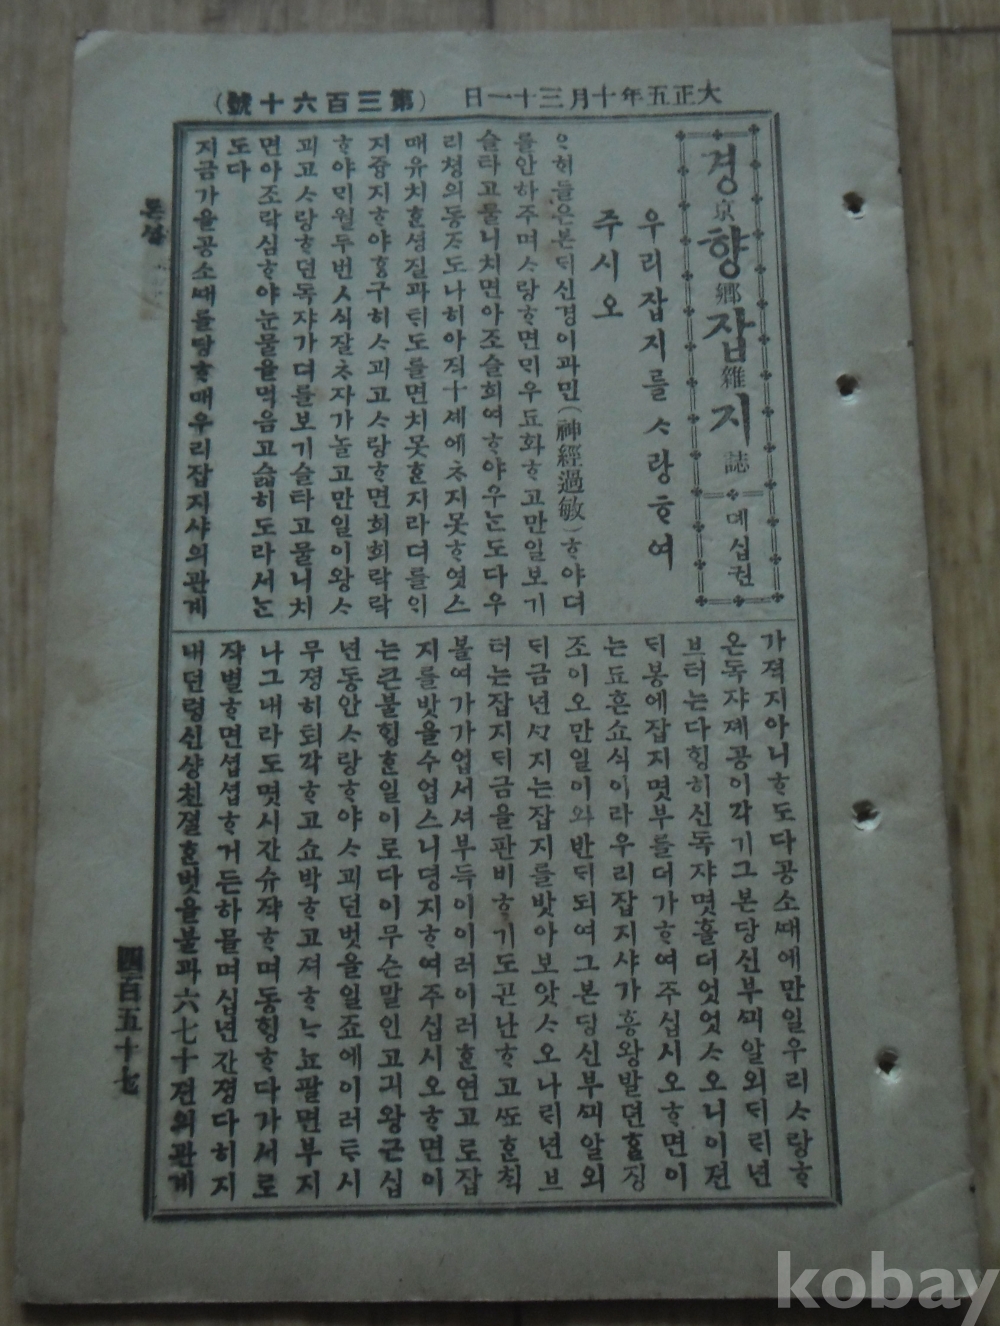 大正五年十月三十一日 (第三百六十號)
경京향鄕잡雜지誌 뎨십권
우리잡지를ᄉᆞ랑ᄒᆞ여
주시오
ᄋᆞ히들은본ᄃᆡ신경이과민(神經過敏)ᄒᆞ야뎌
를안하주며ᄉᆞ랑ᄒᆞ면ᄆᆡ우됴화ᄒᆞ고만일보기
슬타고물니치면아조슬희여ᄒᆞ야우ᄂᆞᆫ도다우
리쳥의동ᄌᆞ도나히아직十셰에ᄎᆞ지못ᄒᆞ엿스
매유치ᄒᆞᆫ셩질과ᄐᆡ도를면치못ᄒᆞᆫ지라뎌를ᄋᆡ
지즁지ᄒᆞ야ᄒᆞᆼ구히ᄉᆞ괴고ᄉᆞ랑ᄒᆞ면희희락락
ᄒᆞ야ᄆᆡ월두번식잘ᄎᆞ자가놀고만일이왕ᄉᆞ
괴고ᄉᆞ랑ᄒᆞ던독쟈가뎌를보기슬타고물니치
면아조락심ᄒᆞ야눈물을먹음고슯히도라서ᄂᆞᆫ
도다
지금가을공소ᄯᅢ를당ᄒᆞ매우리잡지샤의관계
가젹지아니ᄒᆞ도다공소ᄯᅢ에만일우리ᄉᆞ랑ᄒᆞ
온독쟈졔공이각기그본당신부ᄭᅴ알외ᄃᆡᄅᆡ년
브터는다ᄒᆡᆼ히신독쟈몃흘더엇엇ᄉᆞ오니이젼
ᄃᆡ봉에잡지몃부를더가ᄒᆞ여주십시오ᄒᆞ면이
는됴흔쇼식이라우리잡지샤가흥왕발뎐ᄒᆞᆯ징
조이오만일이와반ᄃᆡ되여그본당신부ᄭᅴ알외
ᄃᆡ금년ᄭᆞ지는잡지를밧아보앗ᄉᆞ오나ᄅᆡ년브
터는잡지ᄃᆡ금을판비ᄒᆞ기도곤난ᄒᆞ고ᄯᅩᄒᆞᆫ칙
볼여가가업서셔부득이이러이러ᄒᆞᆫ연고로잡
지를밧을수업스니뎡지ᄒᆞ여주십시오ᄒᆞ면이
는큰불ᄒᆡᆼᄒᆞᆫ일이로다이무슨말인고긔왕근십
년동안ᄉᆞ랑ᄒᆞ야ᄉᆞ괴던벗을일죠에이러ᄐᆞ시
무졍히퇴각ᄒᆞ고쇼박ᄒᆞ고져ᄒᆞᄂᆞ뇨팔면부지
나그내라도몃시간슈쟉ᄒᆞ며동ᄒᆡᆼᄒᆞ다가서로
쟉별ᄒᆞ면셥셥ᄒᆞ거든하믈며십년간졍다히지
내던령신샹친졀ᄒᆞᆫ벗을불과六七十젼의관계
론셜
四百五十七
kobay